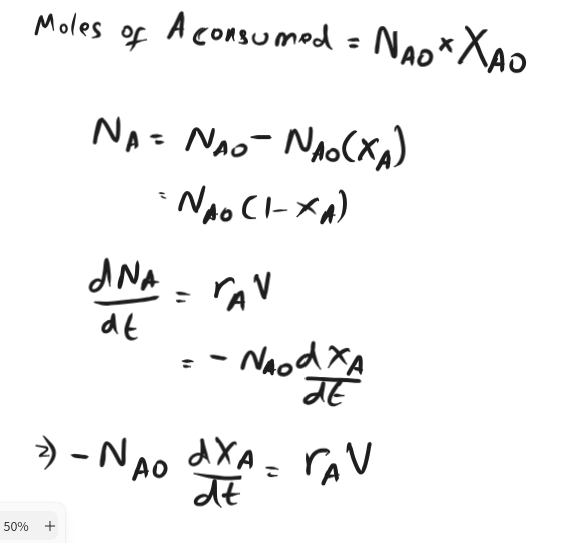 Moles of A consumed = N_A0 × X_A0
N_A = N_A0 - N_A0(x_A)
= N_A0 (1 - x_A)
dN_A/dt = r_A V
= - N_A0 dx_A/dt
⇒ - N_A0 dX_A/dt = r_A V
50% +